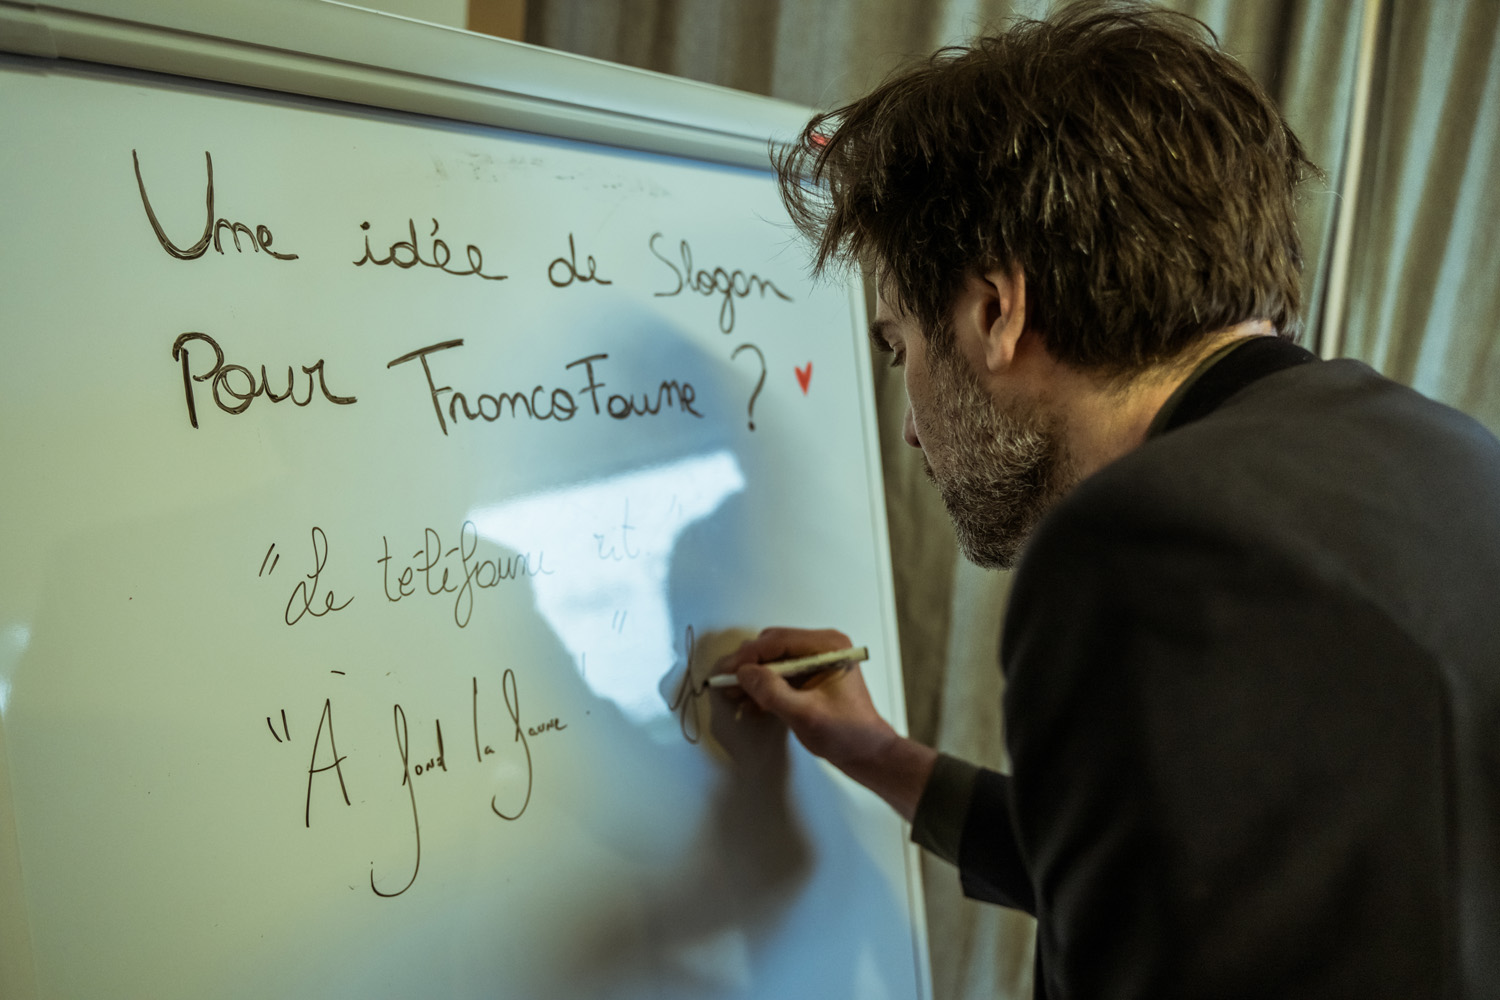 Une idée de Slogan
Pour FrancoFaune ? ♥
"Le téléfaune rit"
"À fond la faune !"